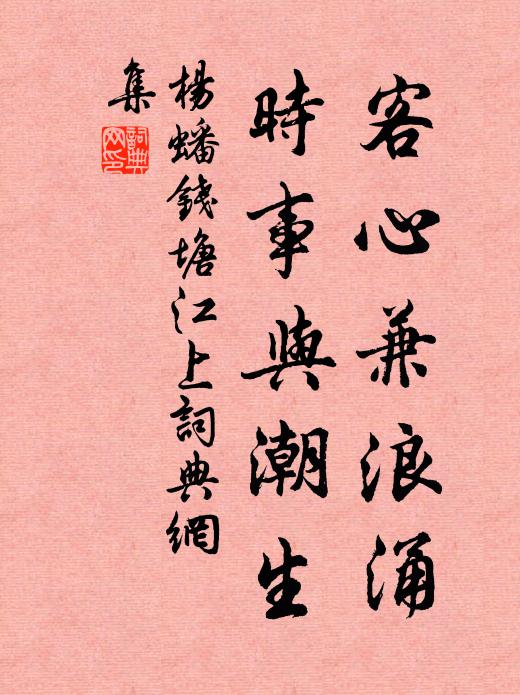 客心兼浪涌
時事與潮生
楊蟠錢塘江上詞典網
集
詞典
网印